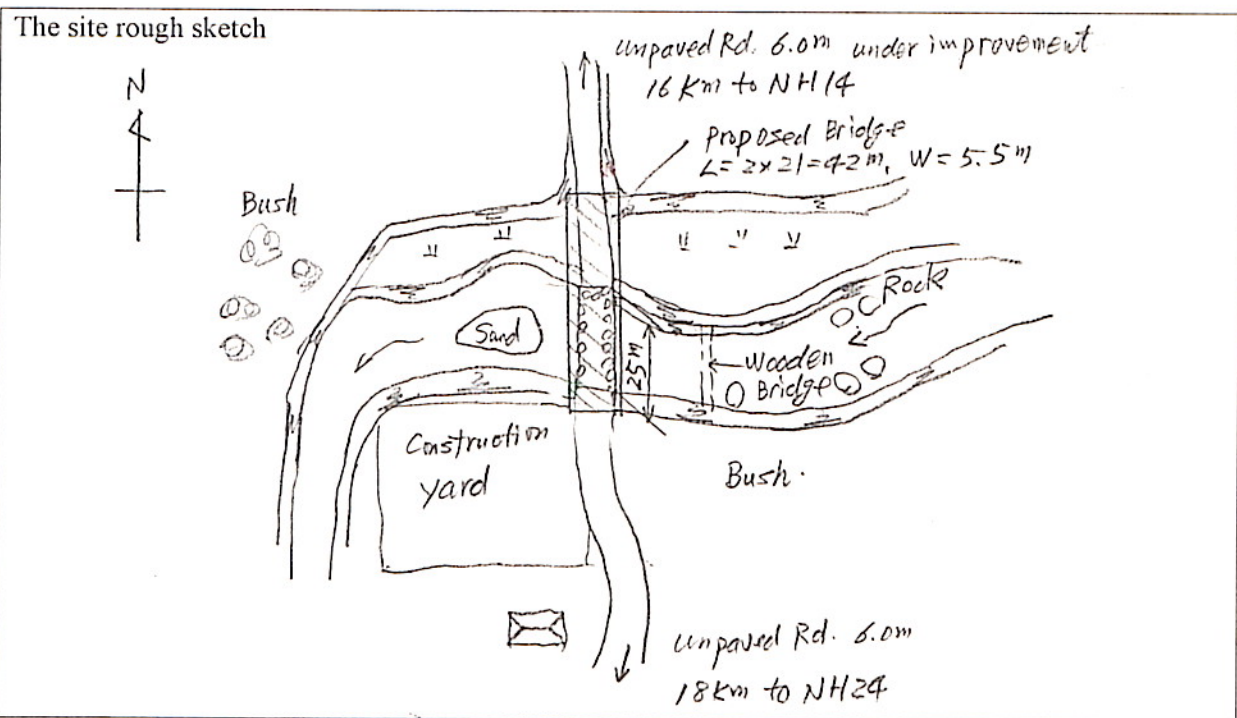 The site rough sketch
unpaved Rd. 6.0m under improvement
16 Km to NH14
N
Proposed Bridge
L=2×21=42m, W=5.5m
Bush
Rock
Sand
25m
Wooden
Bridge
Construction
yard
Bush.
unpaved Rd. 6.0m
18km to NH24